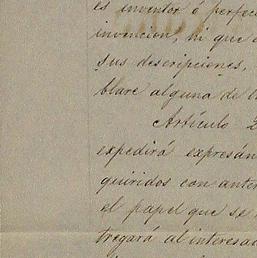 es inventor ó perfec
invencion, ni que
sus descripciones,
blare alguna de
Artículo 2
expedirá expresán
quiridos con anter
el papel que se
tregará al interesad